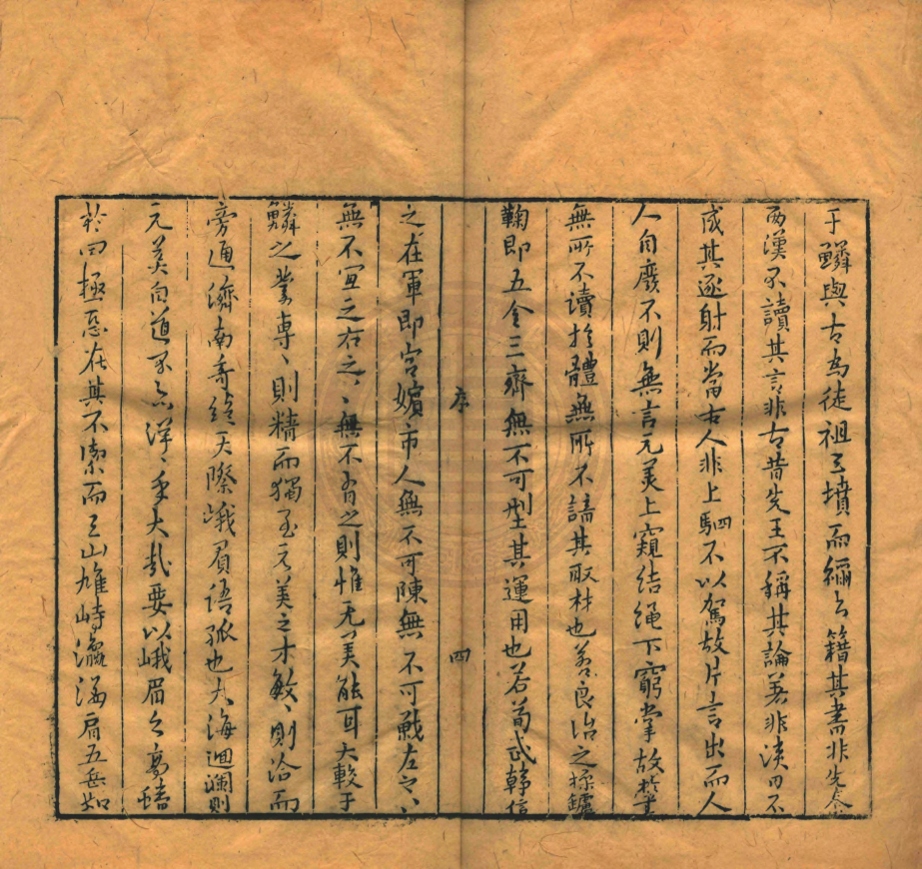 于鱗與古為徒祖三墳而禰六籍其書非先秦
兩漢不讀其言非古昔先王不稱其論著非浹日不
成其逐射而當古人非上駟不以駕故片言出而人
人自廢不則無言元美上窺結繩下窮掌故於書
無所不讀於體無所不諳其取材也若良冶之操鑪
鞴即五金三齊無不可型其運用也若武韓信
序
四
之在軍即宮嬪市人無不可陳無不可戰左之〻〻
無不宜之右之〻〻無不有之則惟元美能耳大較于
鱗之業專〻則精而獨至元美之才敏〻則洽而
旁通濟南奇絕天際峨眉語孤也大海迴瀾則
元美自道不亦洋〻乎大哉要以峨眉之高蟠
於四極惡在其不崇而三山雄峙瀛海眉五岳如